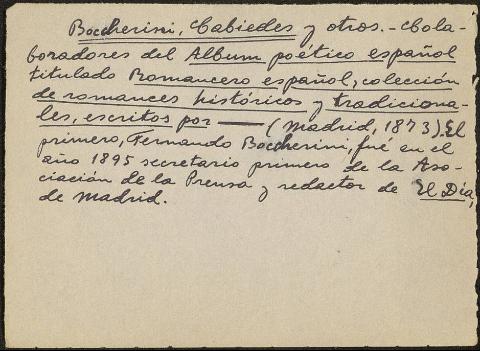 Boccherini, Cabiedes y otros. - Cola-
boradores del Album poético español
titulado Romancero español, colección
de romances históricos y tradiciona-
les, escritos por —— (Madrid, 1873). El
primero, Fernando Boccherini, fué en el
año 1895 secretario primero de la Aso-
ciación de la Prensa y redactor de El Día,
de Madrid.